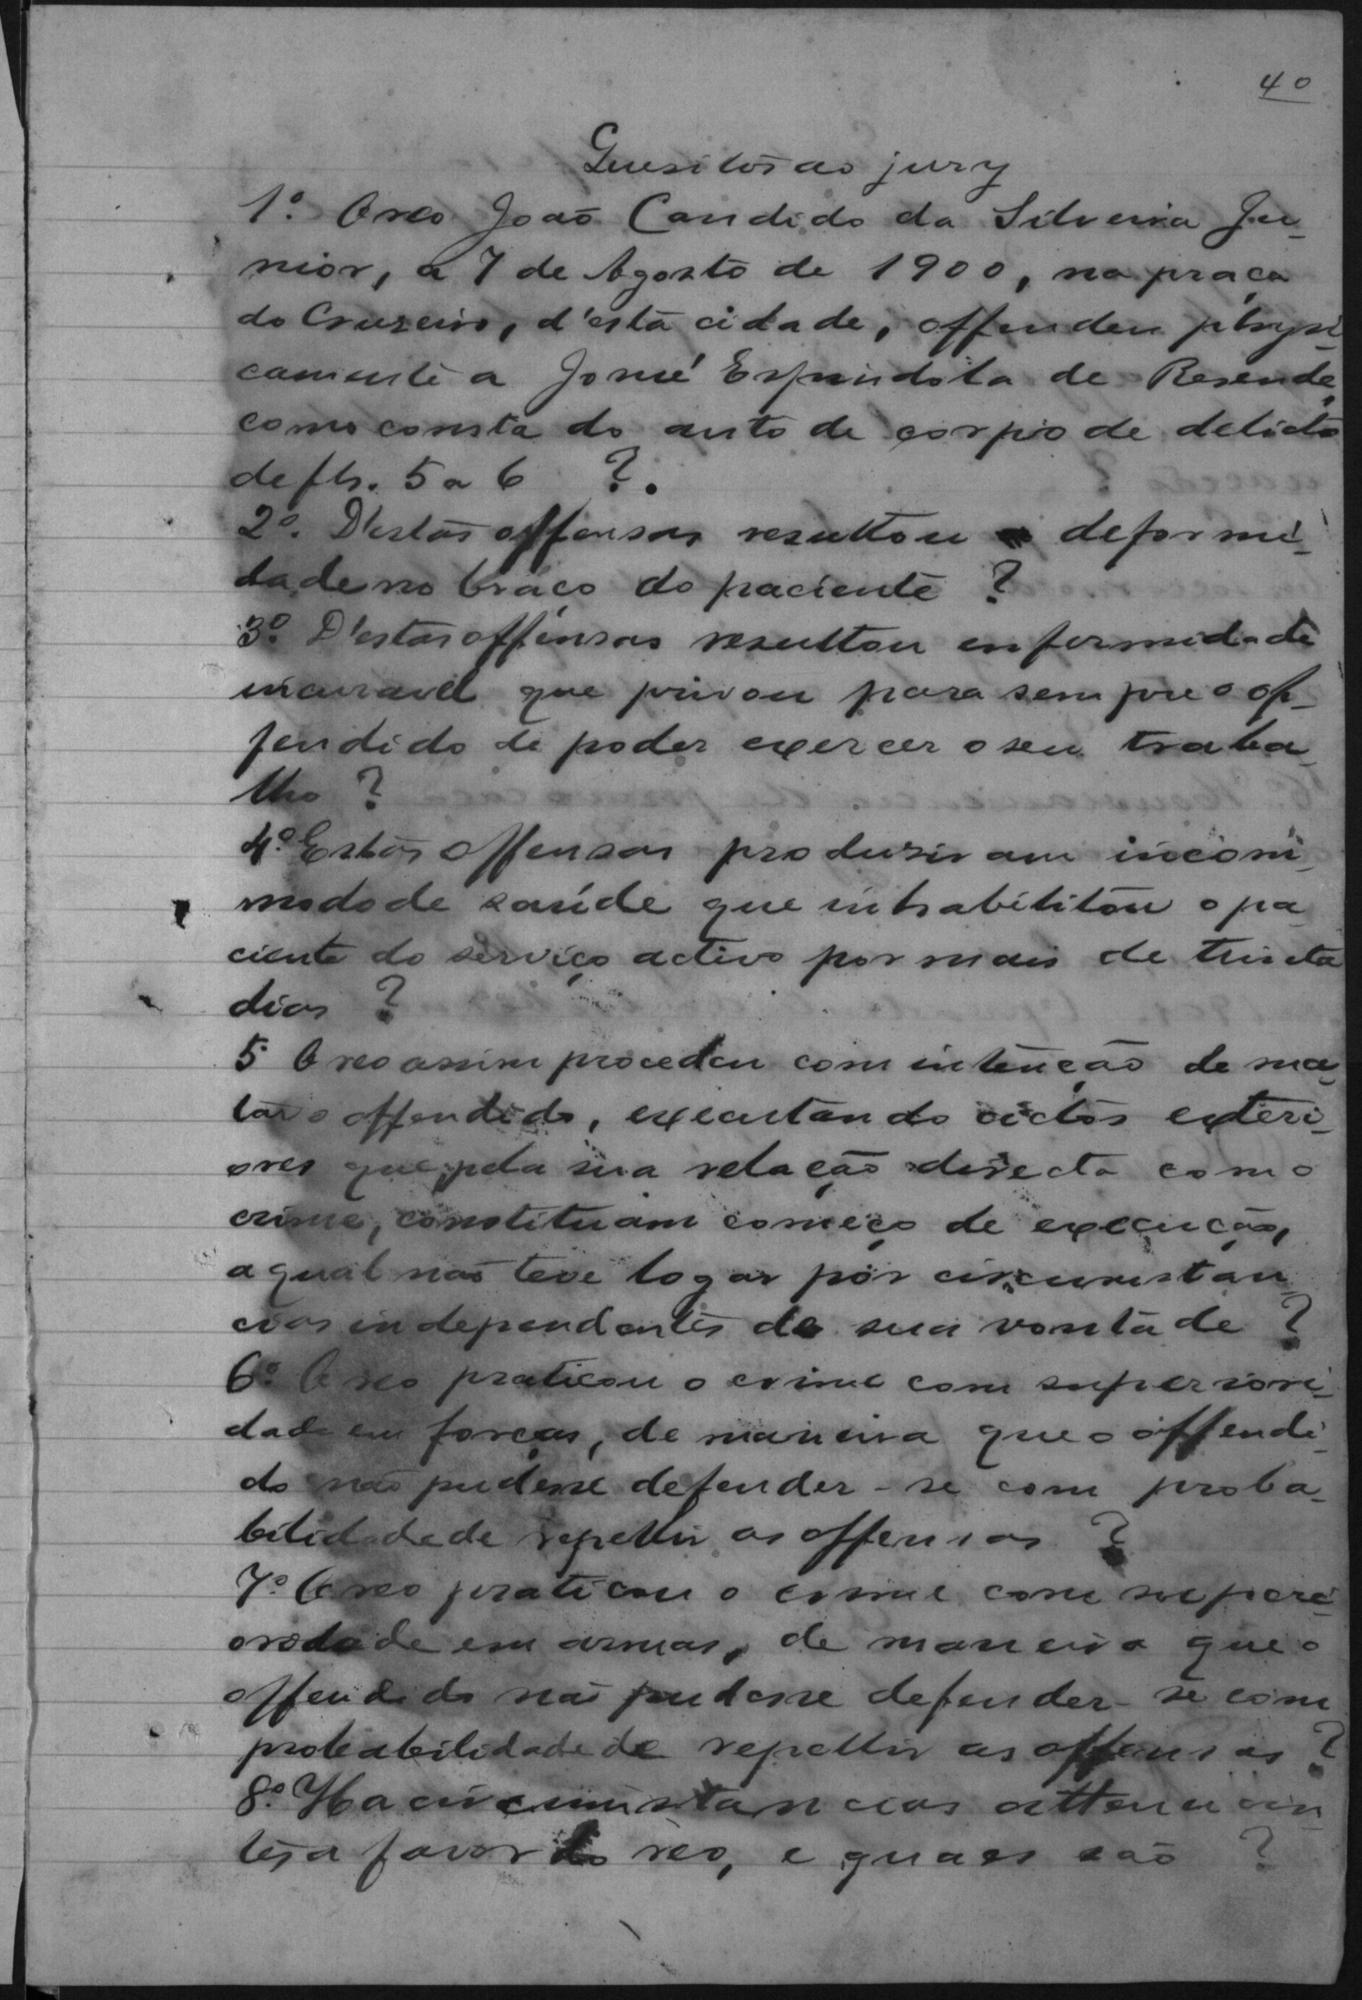 40
Quesitos ao jury
1º. O reo João Candido da Silveira Ju-
nior, a 7 de Agosto de 1900, na praça
do Cruzeiro, d'esta cidade, offendeu physi-
camente a José Espindola de Resende,
como consta do auto de corpo de delicto
de fls. 5 a 6 ?.
2º. D'estas offensas resultou deformi-
dade no braço do paciente ?
3º. D'estas offensas resultou enfermidade
incuravel que privou para sempre o of-
fendido de poder exercer o seu traba-
lho ?
4º. Estas offensas produziram incom-
modo de saúde que inhabilitou o pa
ciente do serviço activo por mais de trinta
dias ?
5º O reo assim procedeu com intenção de ma-
tar o offendido, executando actos exteri-
ores que, pela sua relação directa com o
crime, constituam começo de execução,
a qual não teve logar por circumstan-
cias independentes de sua vontade ?
6º. O reo praticou o crime com superiori-
dade em forças, de maneira que o offendi-
do não pudesse defender-se com proba-
bilidade de repellir as offensas ?
7º. O reo praticou o crime com superi-
oridade em armas, de maneira que o
offendido não pudesse defender-se com
probabilidade de repellir as offensas ?
8º. Ha circumstancias attenuan
tes a favor do réo, e quaes são ?